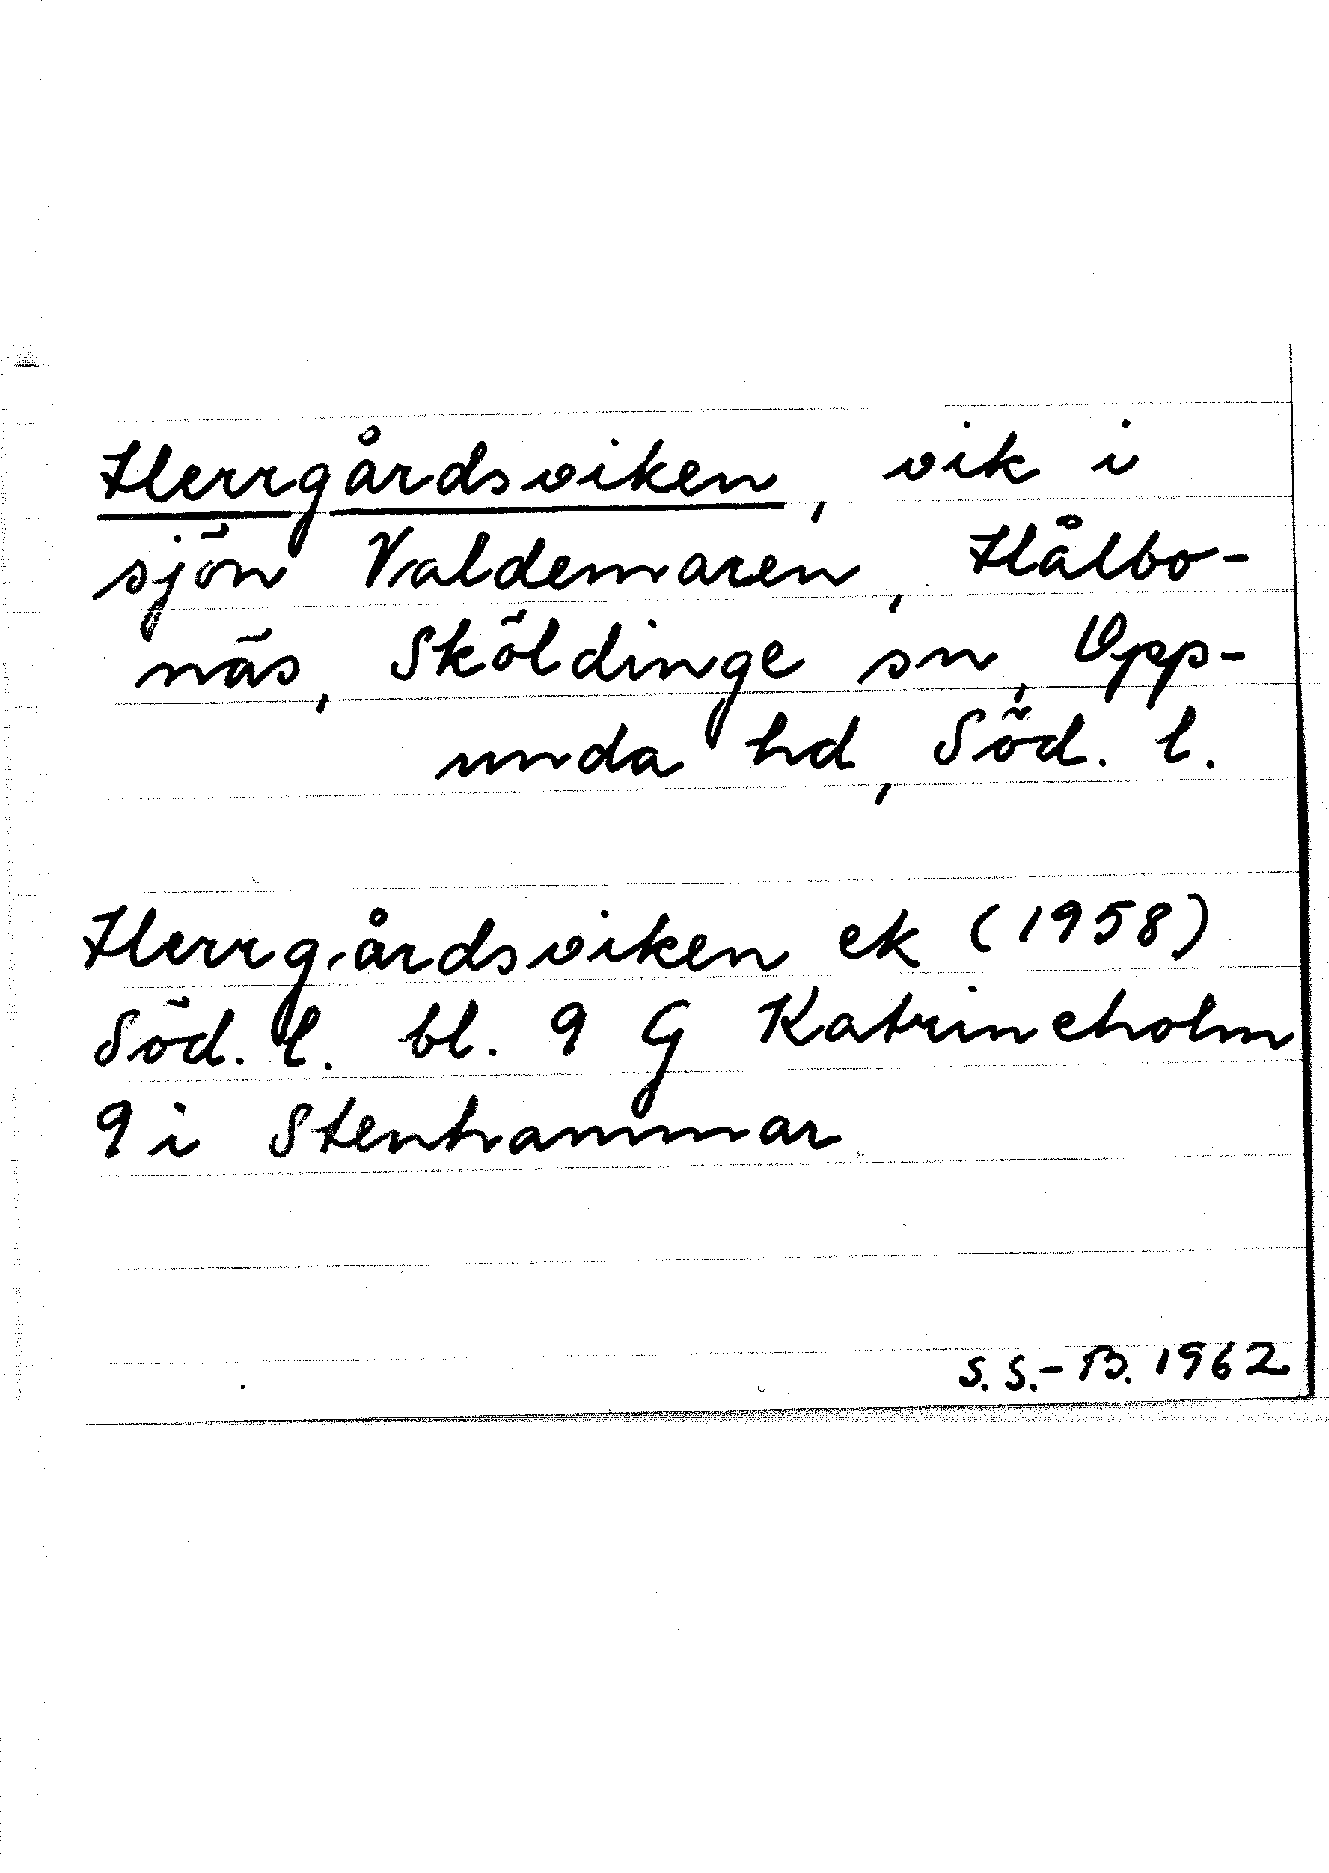 Herrgårdsviken, vik i
sjön Valdemaren, Hålbo-
näs, Sköldinge sn, Opp-
unda hd, Söd. l.
Herrgårdsviken ek (1958)
Söd. l. bl. 9 G Katrineholm
9 i Stenhammar
S. S.-B. 1962